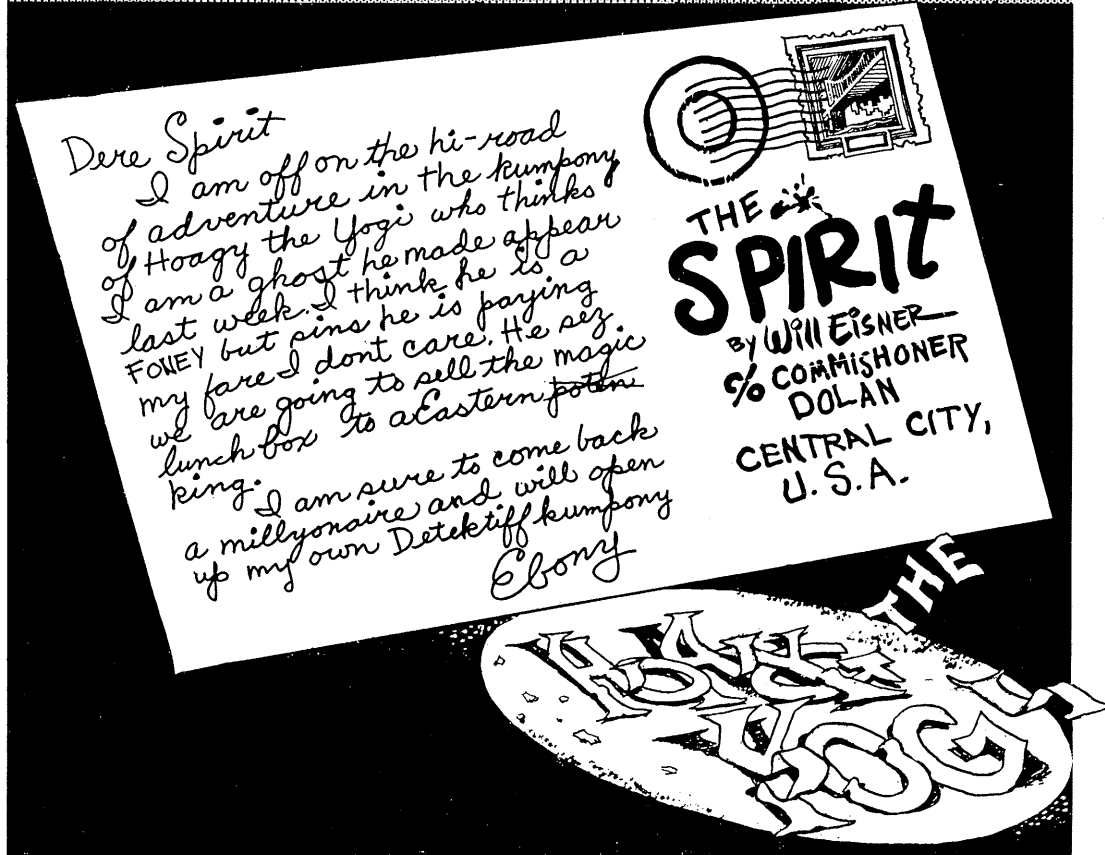 Dere Spirit
I am off on the hi-road
of adventure in the kumpony
of Hoagy the Yogi who thinks
I am a ghost he made appear
last week. I think he is a
FONEY but sins he is paying
my fare I dont care. He sez
we are going to sell the magic
lunch box to a Eastern poten
king.
I am sure to come back
a millyonaire and will open
up my own Detektiff kumpony
Ebony
THE
SPIRIT
BY Will EisNER
c/o COMMISHONER
DOLAN
CENTRAL CITY,
U.S.A.
HOAGY THE
YOGI